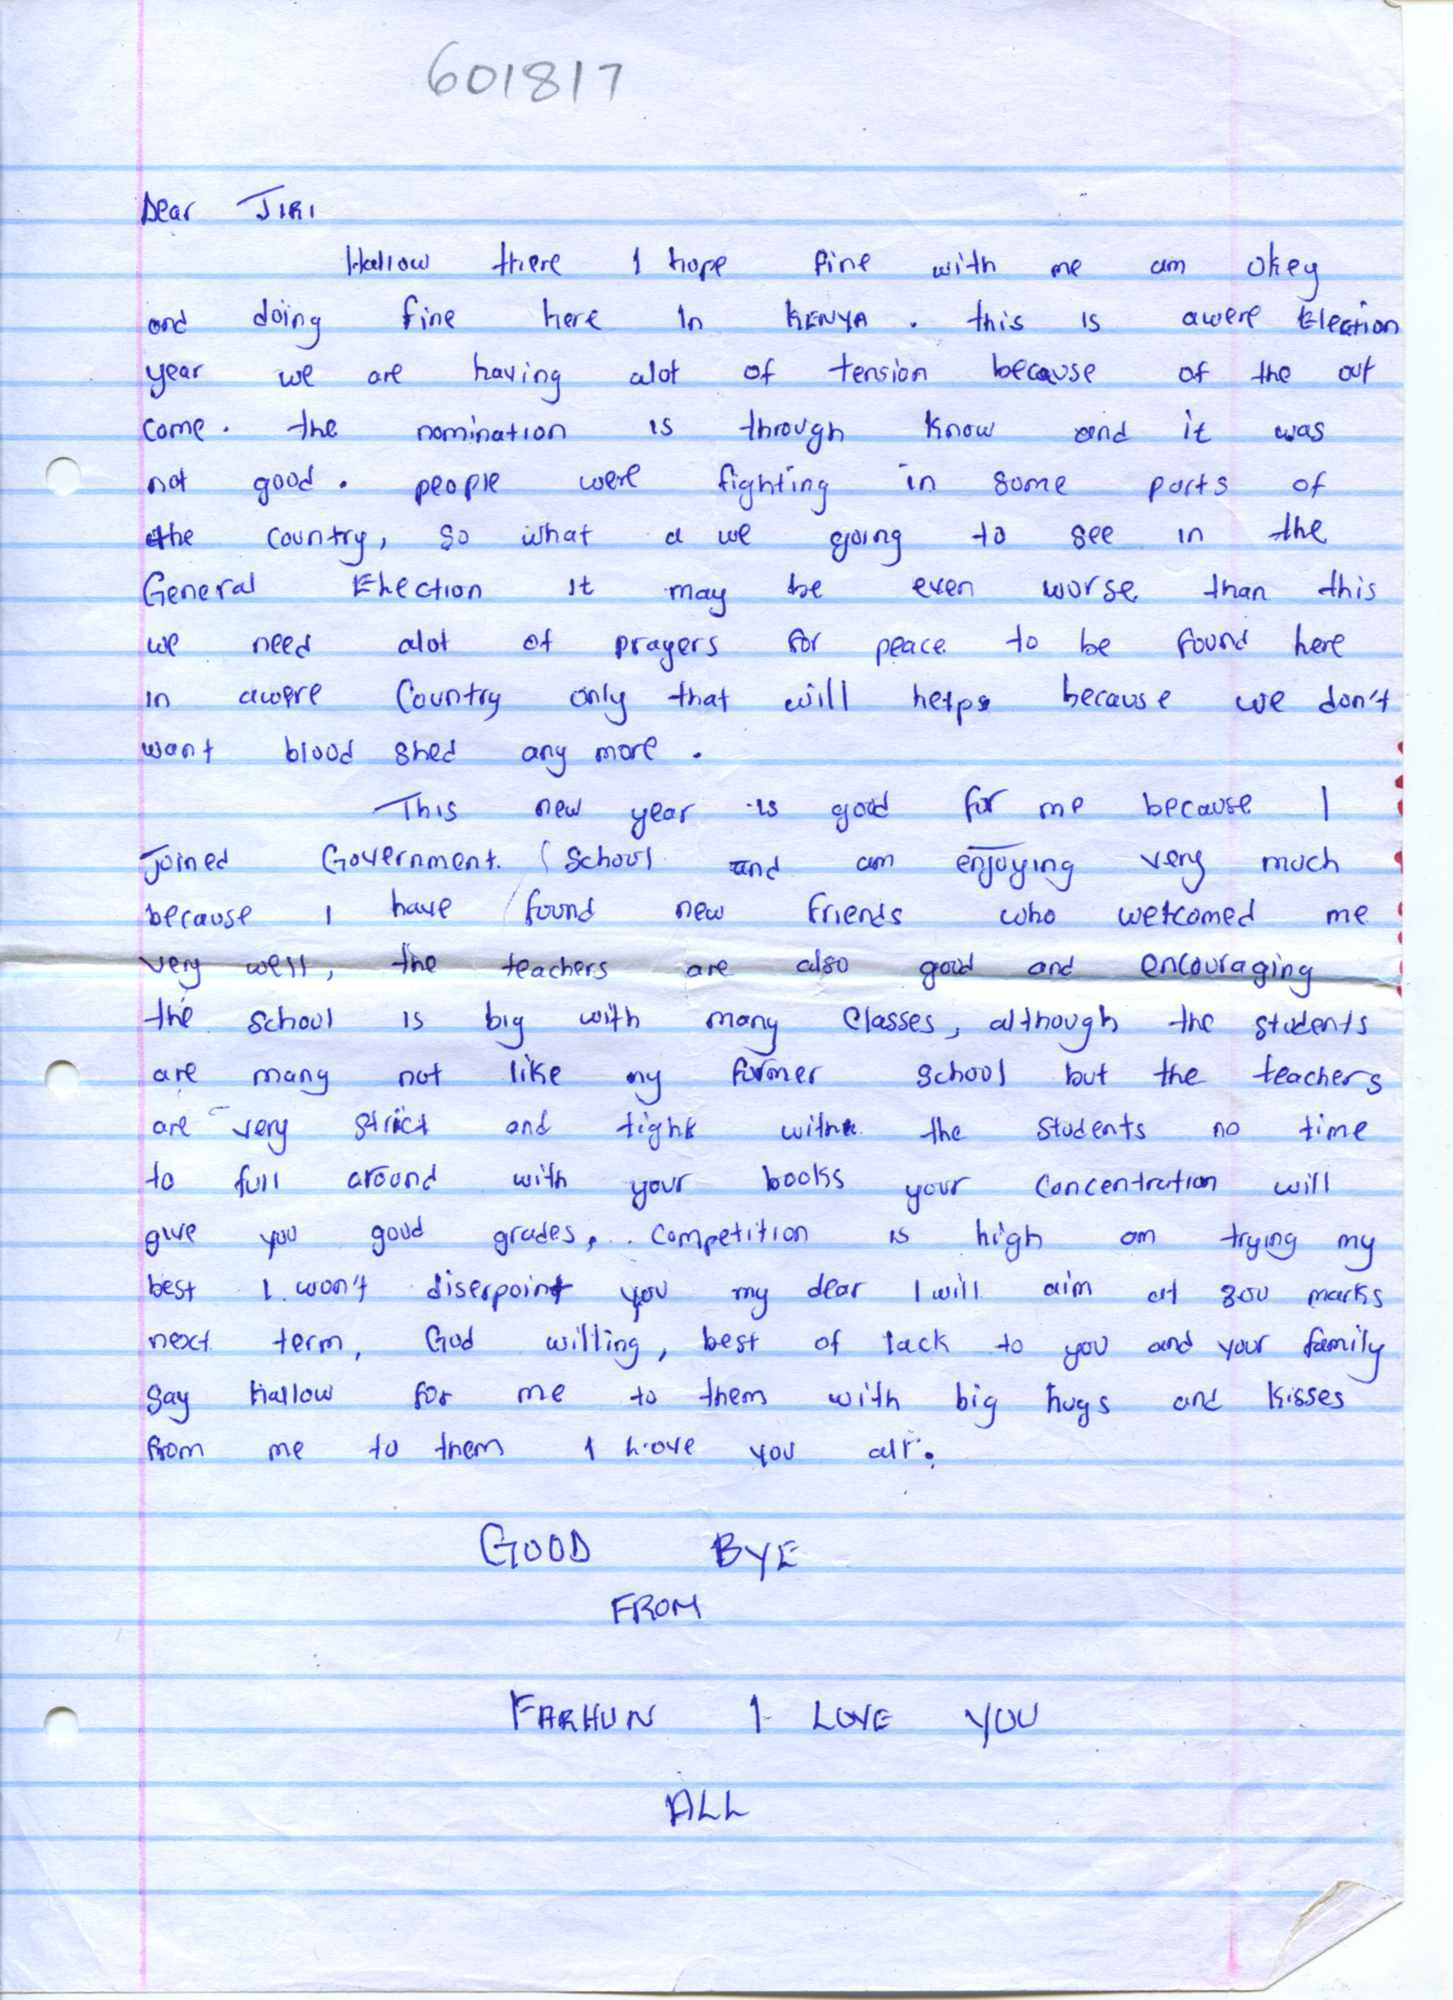 601817
Dear JIRI
Hallow there I hope fine with me am okey
and doing fine here In KENYA. this is awere Election
year we are having alot of tension because of the out
come. the nomination is through know and it was
not good. people were fighting in some parts of
the country, so what a we going to see in the
General Election it may be even worse than this
we need alot of prayers for peace to be found here
in awere Country only that will helps because we don't
want blood shed any more.
This new year is good for me because I
joined Government School and am enjoying very much
because I have found new friends who welcomed me
very well, the teachers are also good and encouraging
the school is big with many classes, although the students
are many not like my former school but the teachers
are very strict and tight with the students no time
to full around with your books your concentration will
give you good grades, competition is high am trying my
best I won't diserpoint you my dear I will aim at 300 marks
next term, God willing, best of lack to you and your family
say hallow for me to them with big hugs and kisses
from me to them I Love you all.
GOOD BYE
FROM
FARHUN I LOVE YOU
ALL